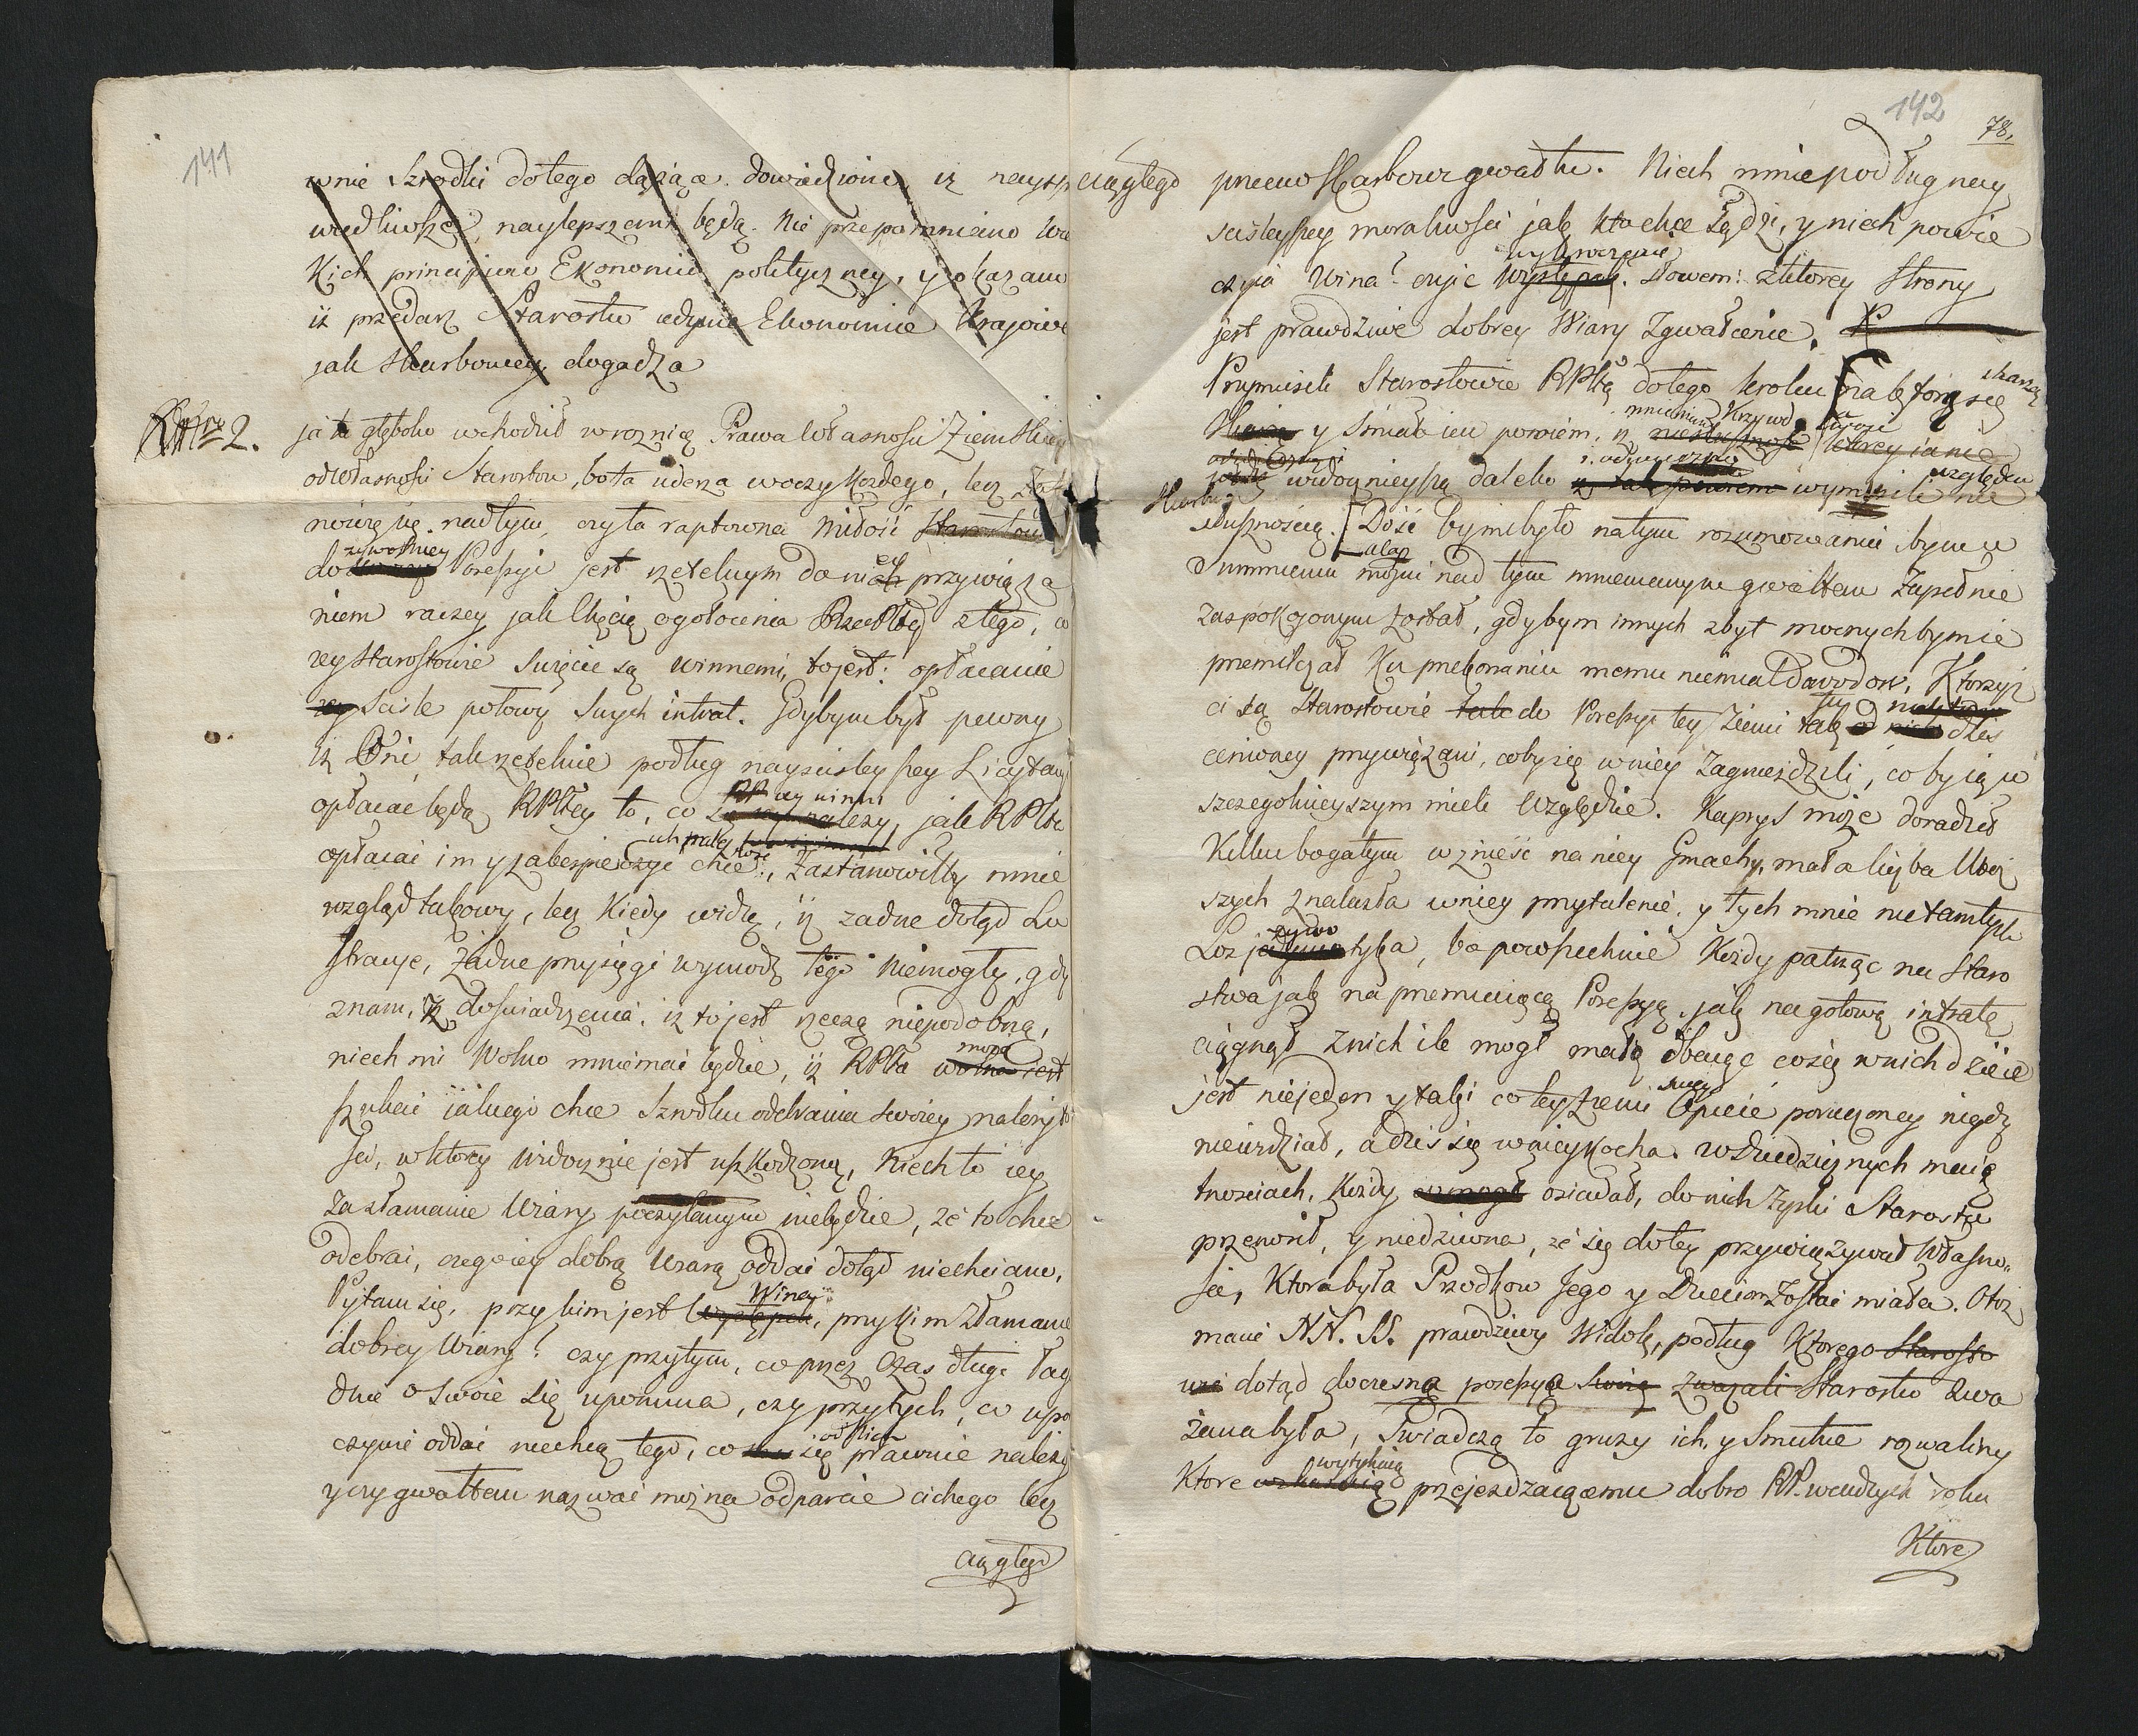 141
wnie szrodki dotego dążące. dowiedziono, iż naysp
wiedliwsze, naylepszemi będą. Nie przepomniano
Kich principiow Ekonomii polityczney, y okazano
iż przedarz Starostw iedynie Ekonomice Kraiowe
jak skarbowey dogadza
2. ja tu głęboko wchodził wroznicę Prawa Własnosci Ziemskiey
odWłasnosci Starostw, bo ta uderza woczy każdego, lecz
nowię się nadtym, czyta raptowna miłość Starostow
do żywotniey Possessyi jest rzetelnym do niey przywiąza
niem raczey jak Chęcią ogołocenia RzPltey z tego, co
iey Starostowie święcie są winnemi, tojest: opłacanie
iey scisle połowy swych intrat. Gdybym był pewny
iż Oni tak rzetelnie podług nayscisleyszey Licytacyi
opłacac będą RPltey to, co iey winni jak RPlta
opłacać im y zabespieczyć chce, Zastanowiłby mnie
wzgląd takowy, lecz Kiedy widzę, iż żadne dotąd Lu
stracye, żadne przysięgi wymodz tego niemogły, gdy
znam, z doswiadczenia, iż tojest rzeczą niepodobną,
niech mi Wolno mniemać będzie, iż RPlta może
szukać iakiego chce szrodku odebrania swoiey należyto
sci, wktorey widocznie jest uszkodzoną, niech to iey
za złamanie Wiary poczytanym niebędzie, że to chce
odebrać, czego iey dobrą wiarą oddać dotąd niechciano.
Pytam się, przy kim jest Wina, przy kim złamanie
dobrey Wiary? czy przytym, co przez Czas długi łag
dnie o swoie się upomina, czy przytych, co upo
czywie oddać niechcą tego, co się od Nich prawnie należy
y czy gwałtem nazwać można odparcie cichego lecz
ciągłego
142
78.
ciągłego przeciw Skarbowi gwałtu. Niech mnie podług nay
scisleyszey moralnosci jak kto chce Sądzi, y niech powie
czyia Wina? czyie wykroczenie. Słowem: zktorey strony
jest prawdziwe dobrey Wiary Zgwałcenie.
Przymusili Starostowie RPltą dotego kroku na który się skarżą
y Smiało im powiem, iż mniemaną Krzywdę swoie
widocznieyszą daleko wymusili względem
Skarbu słusznością. Dość bymi było natym rozumowaniu bym w
Summieniu moim nad tym mniemanym gwałtem Zupełnie
zaspokojonym został, gdybym innych zbyt mocnych bymie
przemilczał Ku przekonaniu memu niemiał Dowodow. Ktorzyż
ci są Starostowie do Possessyi tey Ziemi
cenioney przywiązani, coby się wniey Zagnieździli, coby ią w
szczegolnieyszym mieli Względzie. Kaprys może doradził
Kilku bogatym wznieść na niey Gmachy, mała liczba Uboż
szych znalazła wniey przytulenie, y tych mnie
Los żywo tyka, bo powszechnie Każdy patrząc na Staro
stwa jak na przemiiaiącą Possessyą, jak na gotową intratę
ciągnął Znich ile mogł małą dbaiąc cosię wnich dzieie
jest niejeden y taki co teyZiemi swey Opiece poruczoney nigdy
niewidział, a dziś się wniey Kocha. W Dziedzicznych maię
tnosciach, Każdy osiadał, do nich Zyski Starostw
przenosił, y niedziwna, że się do tey przywiązywał Własno
sci, Ktora była Przodkow Jego y Dzieciom Zostać miała. Otoż
macie NN. SS. prawdziwy Widok, podług Ktorego Starosto
wie dotąd doczesną possessya swoią zważali Starostw Uwa
żana była, Swiadczą to gruzy ich, y Smutne rozwaliny
Ktore wytykaią przejeżdzaiącemu dobro RP. wcudzych ręku
Ktore